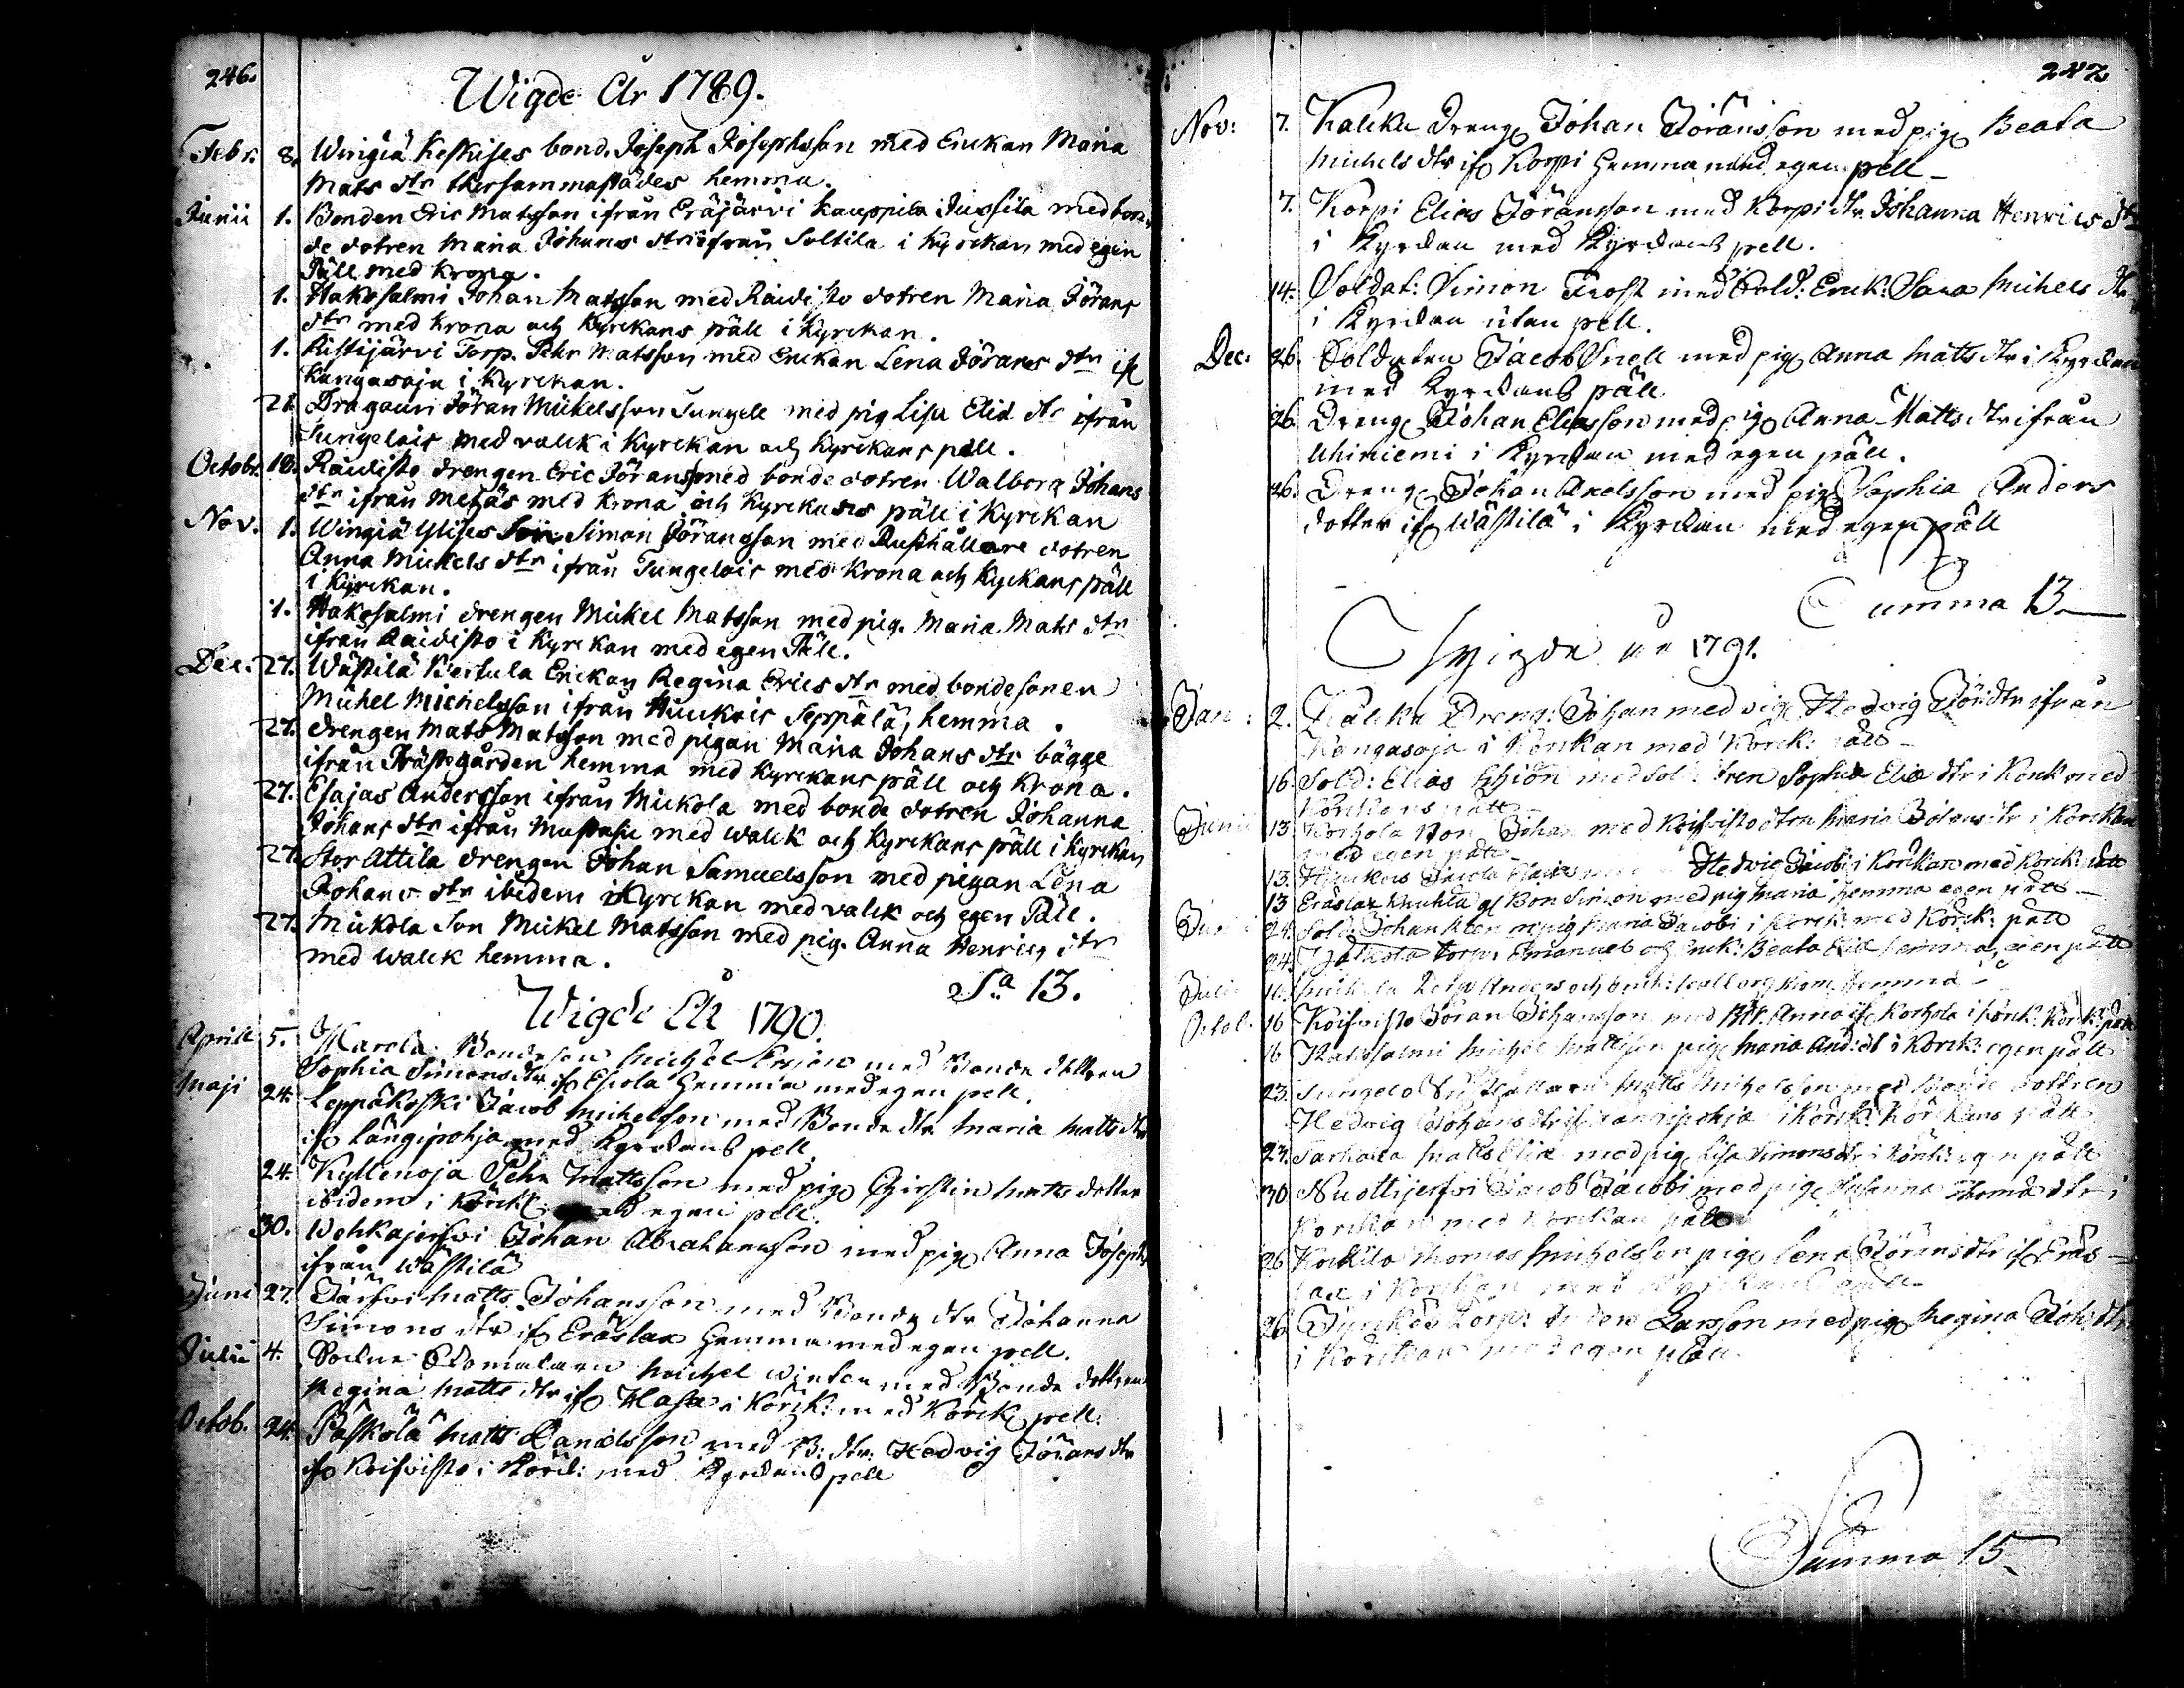 246.
Wigde År 1789.
Febr. 8. Wirigiä Keskises bond. Joseph Josephsson med Enkan Maria
Mats dtr thersammastädes hemma.
Junii 1. Bonden Eric Matsson ifrån Eräjärvi Kauppila Jussila med bon-
de dotren Maria Johans dtr ifrån Soltila i Kyrckan med egen
Päll med Krona.
1. Hakosalmi Johan Matsson med Raidisto dotren Maria Jörans
dtr med Krona och Kyrckans päll i Kyrckan.
1. Ristijärvi Torp. Pehr Matsson med Enckan Lena Jörans dtr if
Kangasoja i Kyrckan.
21. Dragoun Jöran Mickelsson Sungell med pig Lisa Eliæ dtr ifrån
Sungelois med valck i Kyrckan och Kyrckans päll.
Octobr. 18. Raidisto drengen Eric Jöranss med bonde dotren Walborg Johans
dtr ifrån Metzäs med Krona och Kyrckans päll i Kyrckan
Nov. 1. Wirigiä Ylises Son Simon Jöransson med Rusthållare dotren
Anna Mickels dtr ifrån Sungelois med Krona och Kyckans päll
i Kyrckan.
1. Hakosalmi drengen Mickel Matsson med pig. Maria Mats dtr
ifrån Raidisto i Kyrckan med egen Päll.
Dec: 27. Wästilä Bertula Enckan Regina Erics dtr med bondesonen
Michel Michelsson ifrån Huuckois Seppälä, hemma.
27. drengen Mats Matsson med pigan Maria Johans dtr bägge
ifrån Prästegården hemma med Kyrckans päll och Krona.
27. Esajas Andersson ifrån Mickola med bonde dotren Johanna
Johans dtr ifrån med walck och Kyrckans päll i Kyrckan
27. Stor Attila drengen Johan Samuelsson med pigan Lena
Johans dtr ibidem i Kyrckan med valck och egen Päll.
27. Mickola Son Mickel Matsson med pig. Anna Henrics dtr
med walck hemma.
Sa 13.
Wigde År 1790.
Aprill 5. Marola Bondeson Michel Ersson med Bonde dottren
Sophia Simons dtr if Esiola Hemma med egen pell.
Maji 24. Leppäkoski Jacob Michelsson med Bonde dtr Maria Matts dtr
if Långipohja med Kyrckans pell
24. Kyllenoja Pehr Mattsson med pig Christin Matts dotter
ibidem i Körck: med egen pell.
30. Wehkajerfvi Johan Abrahamsson med pig Anna Josephs
ifrån Wästilä
Juni 27. Järfvi Matts Johansson med Bonde dtr Johanna
Simons dtr if Eräslax Hemma med egen pell.
Julii 4. Michel Winter med Bonde dottren
Regina Matts dtr if Hasa i Körck: med Körck pell.
Octob. 24. Päskölä Matts Danielsson med B: dtr: Hedvig Jörans dtr
if Koifvisto i Körck: med Kyrckans pell
247
Nov: 7. Kalcku Dreng Johan Jöransson med pig Beata
Michels dtr if Korpi Hemma med egen pell
7. Korpi Elias Jöransson med Korpi dtr Johanna Henrics dtr
i Kyrckan med Kyrckans pell.
14. Soldat: Simon Frost med Sold: Enck: Sara Michels dtr
i Kyrckan utan pell.
Dec: 26. Soldaten Jacob Snell med pig Anna Matts dtr i Kyrckan
med Kyrckans päll
26. Dreng Johan Eliasson med pig Anna Matts dtr ifrån
Uhiniemi i Kyrckan med egen päll.
26. Dreng Johan Axelsson med pig Sophia Anders
dotter if Wästilä i Kyrckan med egen päll
Summa 13
Wigde år 1791.
Jan: 2. Kalcku Dreng: Johan med pig Hedvig Jör: dtr ifrån
Kangasoja i Körckan med Körck: päll
16. Sold: Elias med Sophia Eliæ dtr i Körck med
Körckans päll
Junii 13. Korhola Johan med Koifvisto dtren Maria Jörans dtr i Körckan
med egen päll
13. Huuckois Hedvig Jacobi i Körckan med Körck: päll
13 Eräslax Bon Simon med pig Maria hemma egen päll
24. Sold: Johan pig Maria Jacobi i Körck: med Körck: päll
24. Torp: Emanuel och Enck: Beata Eliæ hemma, egen päll
Julii Anders och hemma
Octob. 16 Koifvisto Jöran Johansson med Anna if Korhola i Körck: Körck: päll
16 Hakosalmi Michel Mattsson pig Maria And: dt i Körck: egen päll
23. Sungelo Matts Michelsson med Bonde dottren
Hedvig Johans dtr if Långipohja i Körck: Körckans päll
23. Matts Eliæ med pig Lisa Simons dtr i Körck: egen päll
30 Nuottijerfvi Jacob Jacobi med pig Susanna Thomæ dtr i
Körckan med Körckan päll
26 Kockila Thomas Michelsson pig Lena Jörans dtr if Eräs-
lax i Körckan med Kyrckans päll
26. Torp: Larsson med pig Regina Joh: dtr
i Körckan med egen päll
Summa 15